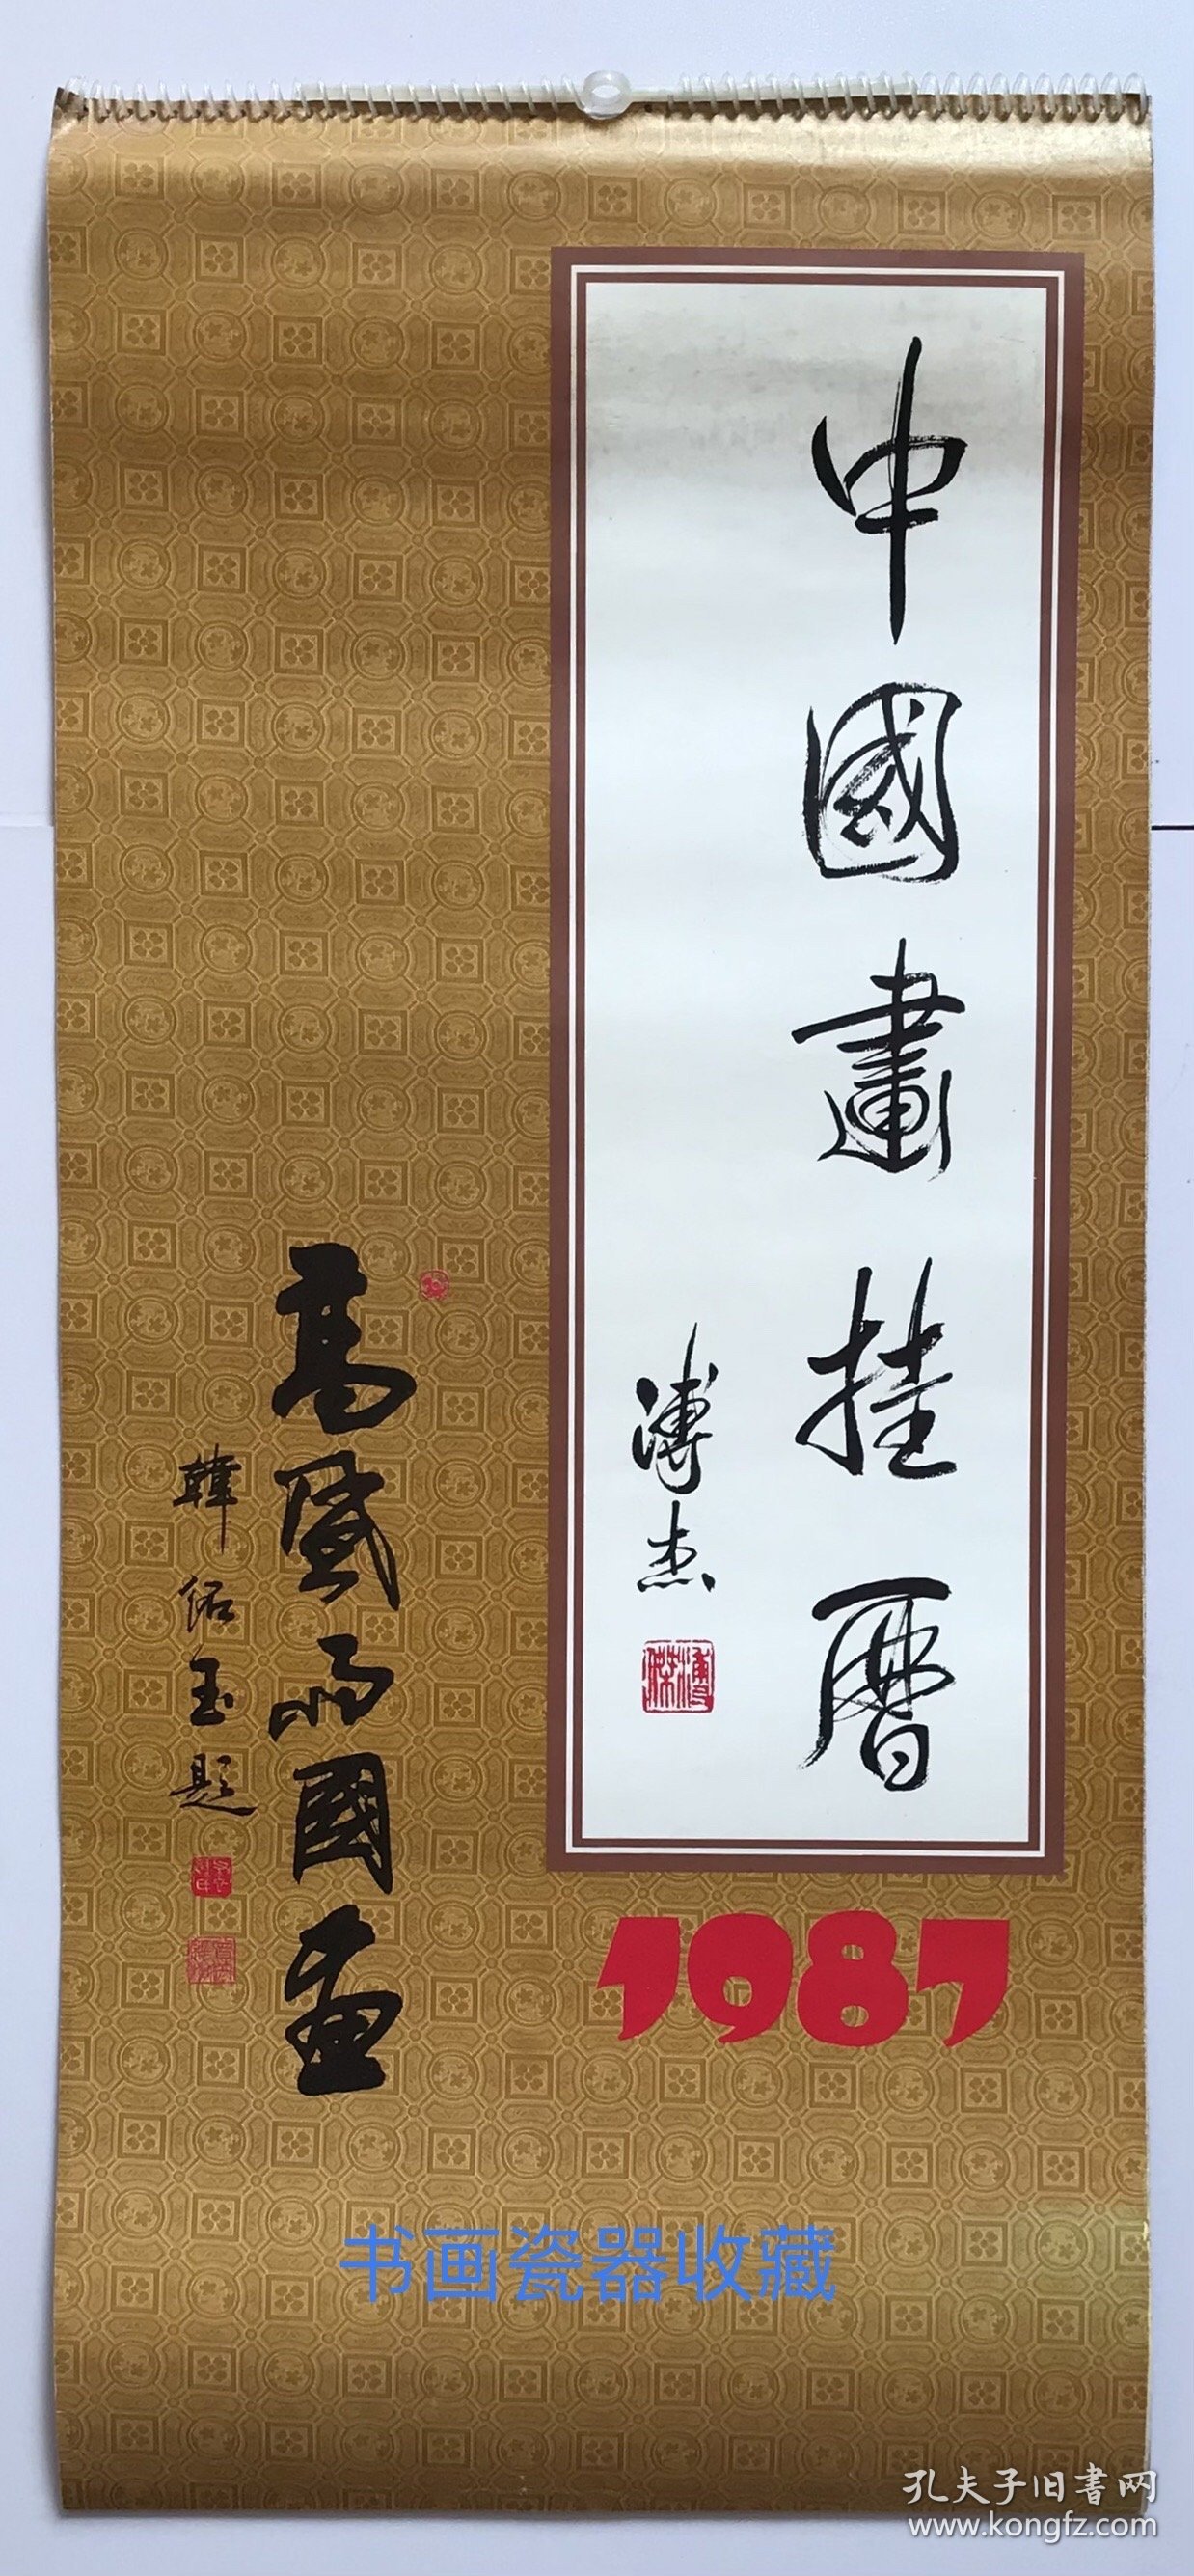 中國畫挂曆
溥杰
溥傑
1987
高盛雨國画
韓紹玉題
书画瓷器收藏
孔夫子旧書网
www.kongfz.com